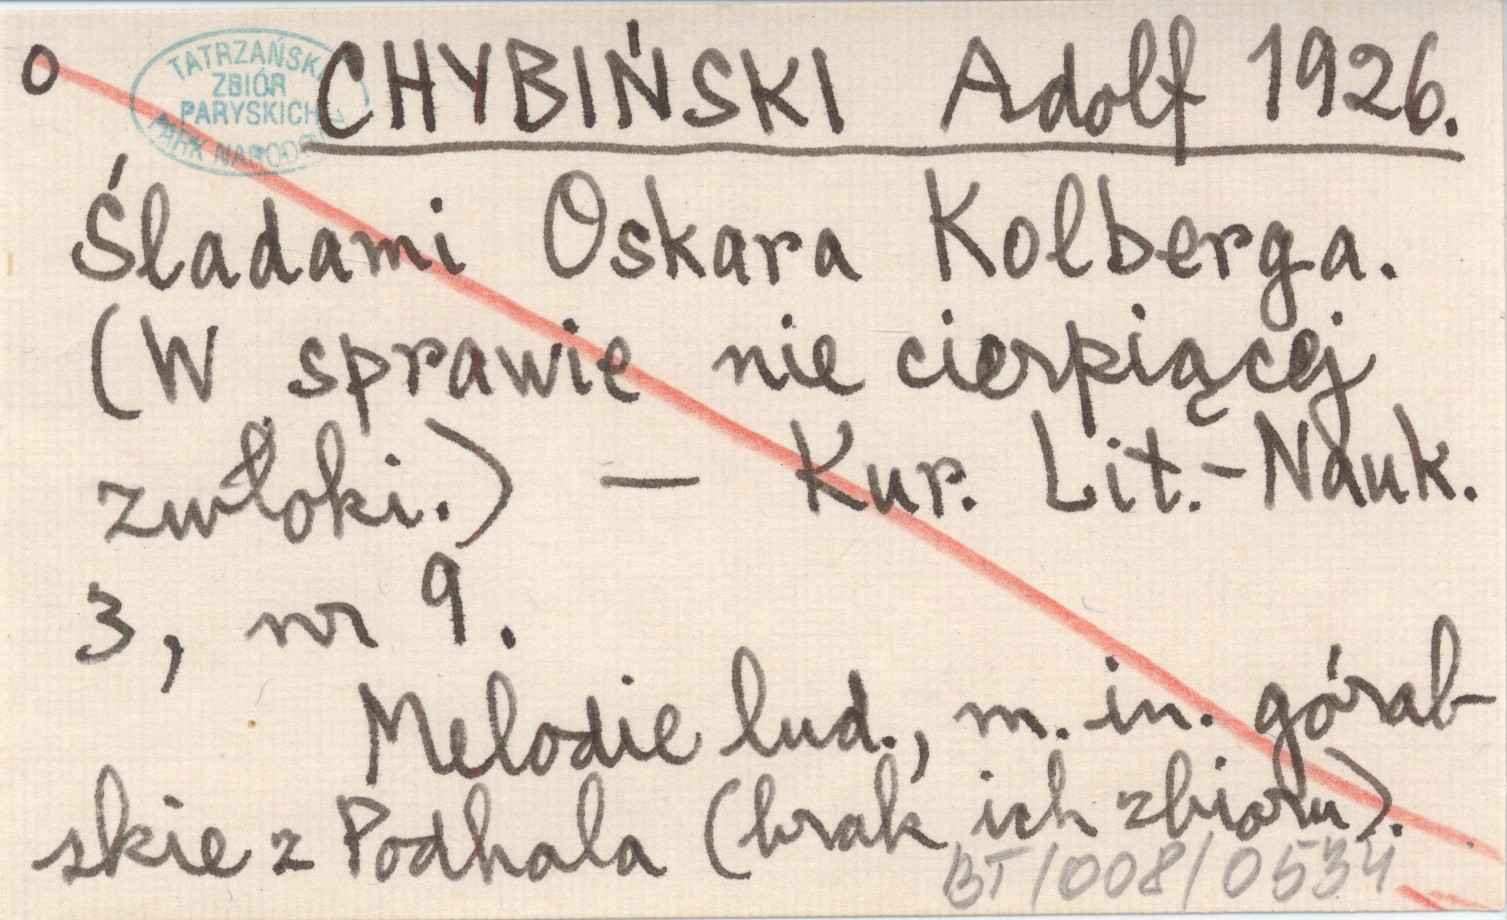 O
TATRZAŃSKI
ZBIÓR
PARYSKICH
PARK NARODOWY
CHYBIŃSKI Adolf 1926.
Śladami Oskara Kolberga.
(W sprawie nie cierpiącej
zwłoki.) — Kur. Lit.-Nauk.
3, nr 9.
Melodie lud., m. in. góral-
skie z Podhala (brak ich zbioru).
BT/008/0534